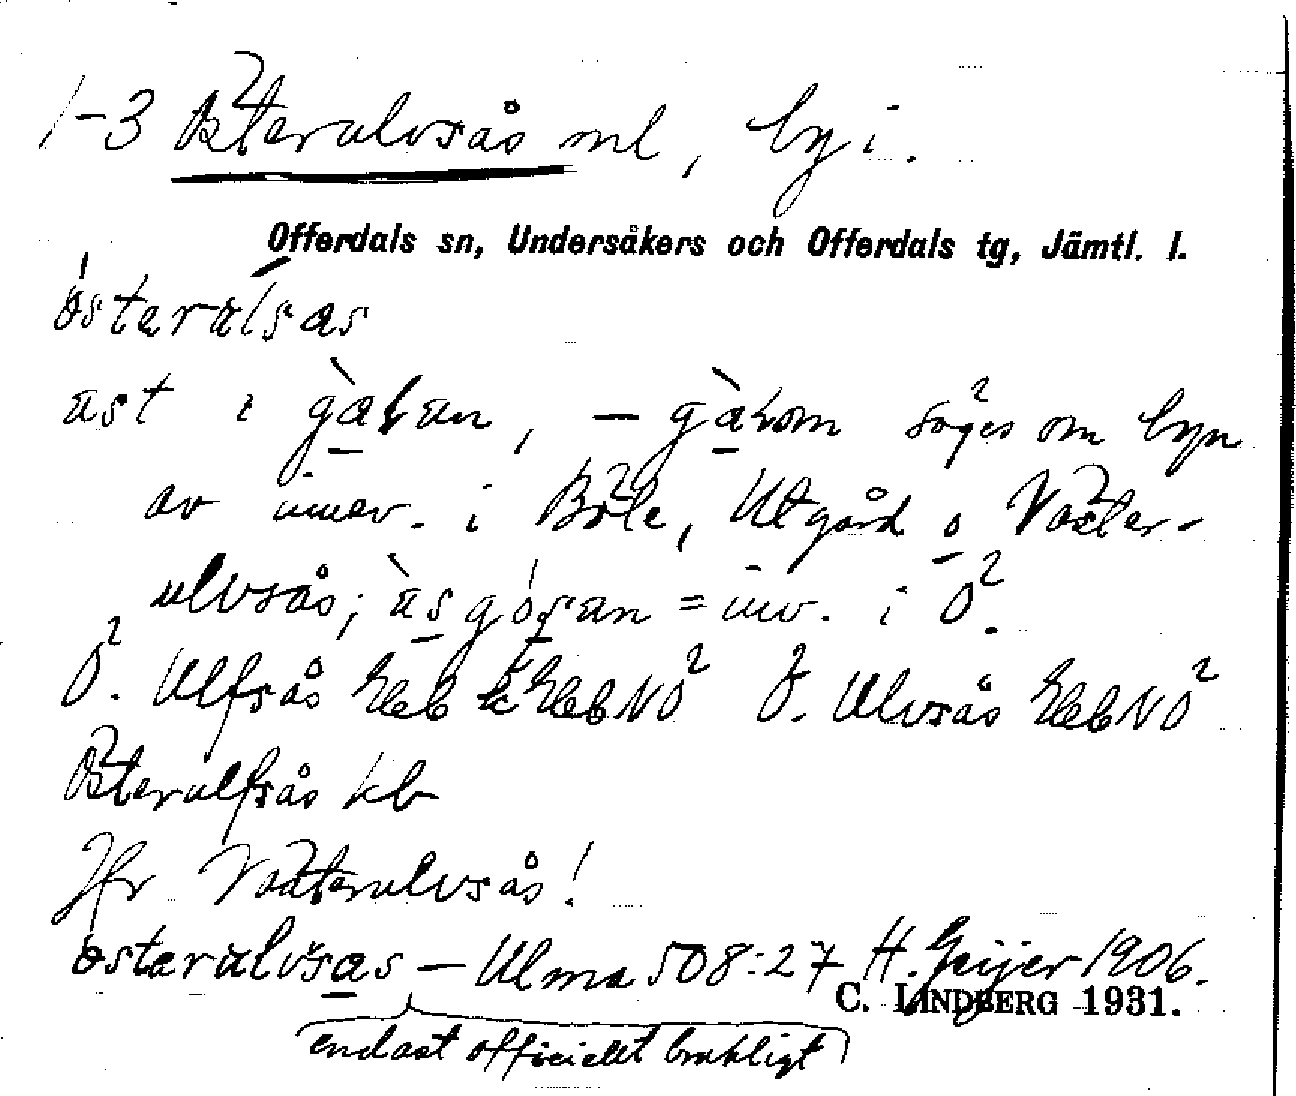 1-3 Österulvsås ml, by i.
Offerdals sn, Undersåkers och Offerdals tg, Jämtl. l.
österålsås
åst i gàḷan, — gàḷom säges om byn
av innev. i Böle, Utgård o Väster-
ulvsås; = inv. i Ö.
Ö. Ulfsås Ö. Ulvsås
Österulfsås kb
Jfr Västerulvsås!
österulvsås — Ulma 508:27 H. Geijer 1906.
C. LINDBERG 1931.
endast officiellt brukligt